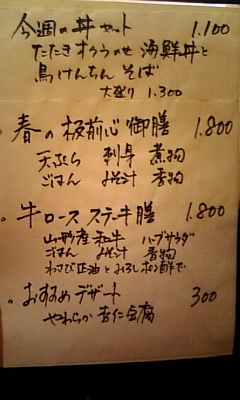 今週の丼セット 1.100
たたきオクラのせ 海鮮丼と
鳥けんちん そば
大盛り 1.300
春の板前心御膳 1.800
天ぷら 刺身 煮物
ごはん みそ汁 香物
牛ロース ステーキ膳 1.800
山形産和牛 ハーブサラダ
ごはん みそ汁 香物
わさび正油とおろしポン酢で
おすすめデザート 300
やわらか杏仁豆腐